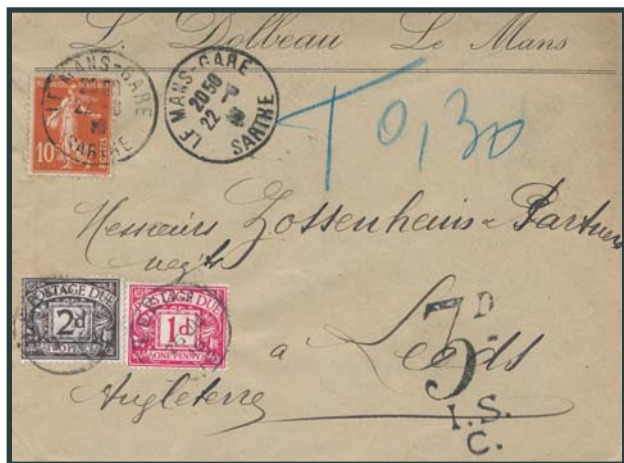 L. Dolbeau Le Mans
LE MANS-GARE
SARTHE
10
LE MANS-GARE
20 50
22
SARTHE
T 0,30
Messieurs Zossenheim & Partners
negts
POSTAGE DUE
2d
TWO PENCE
POSTAGE DUE
1d
ONE PENNY
à Leeds
3D.
I.S.
C.
Angleterre